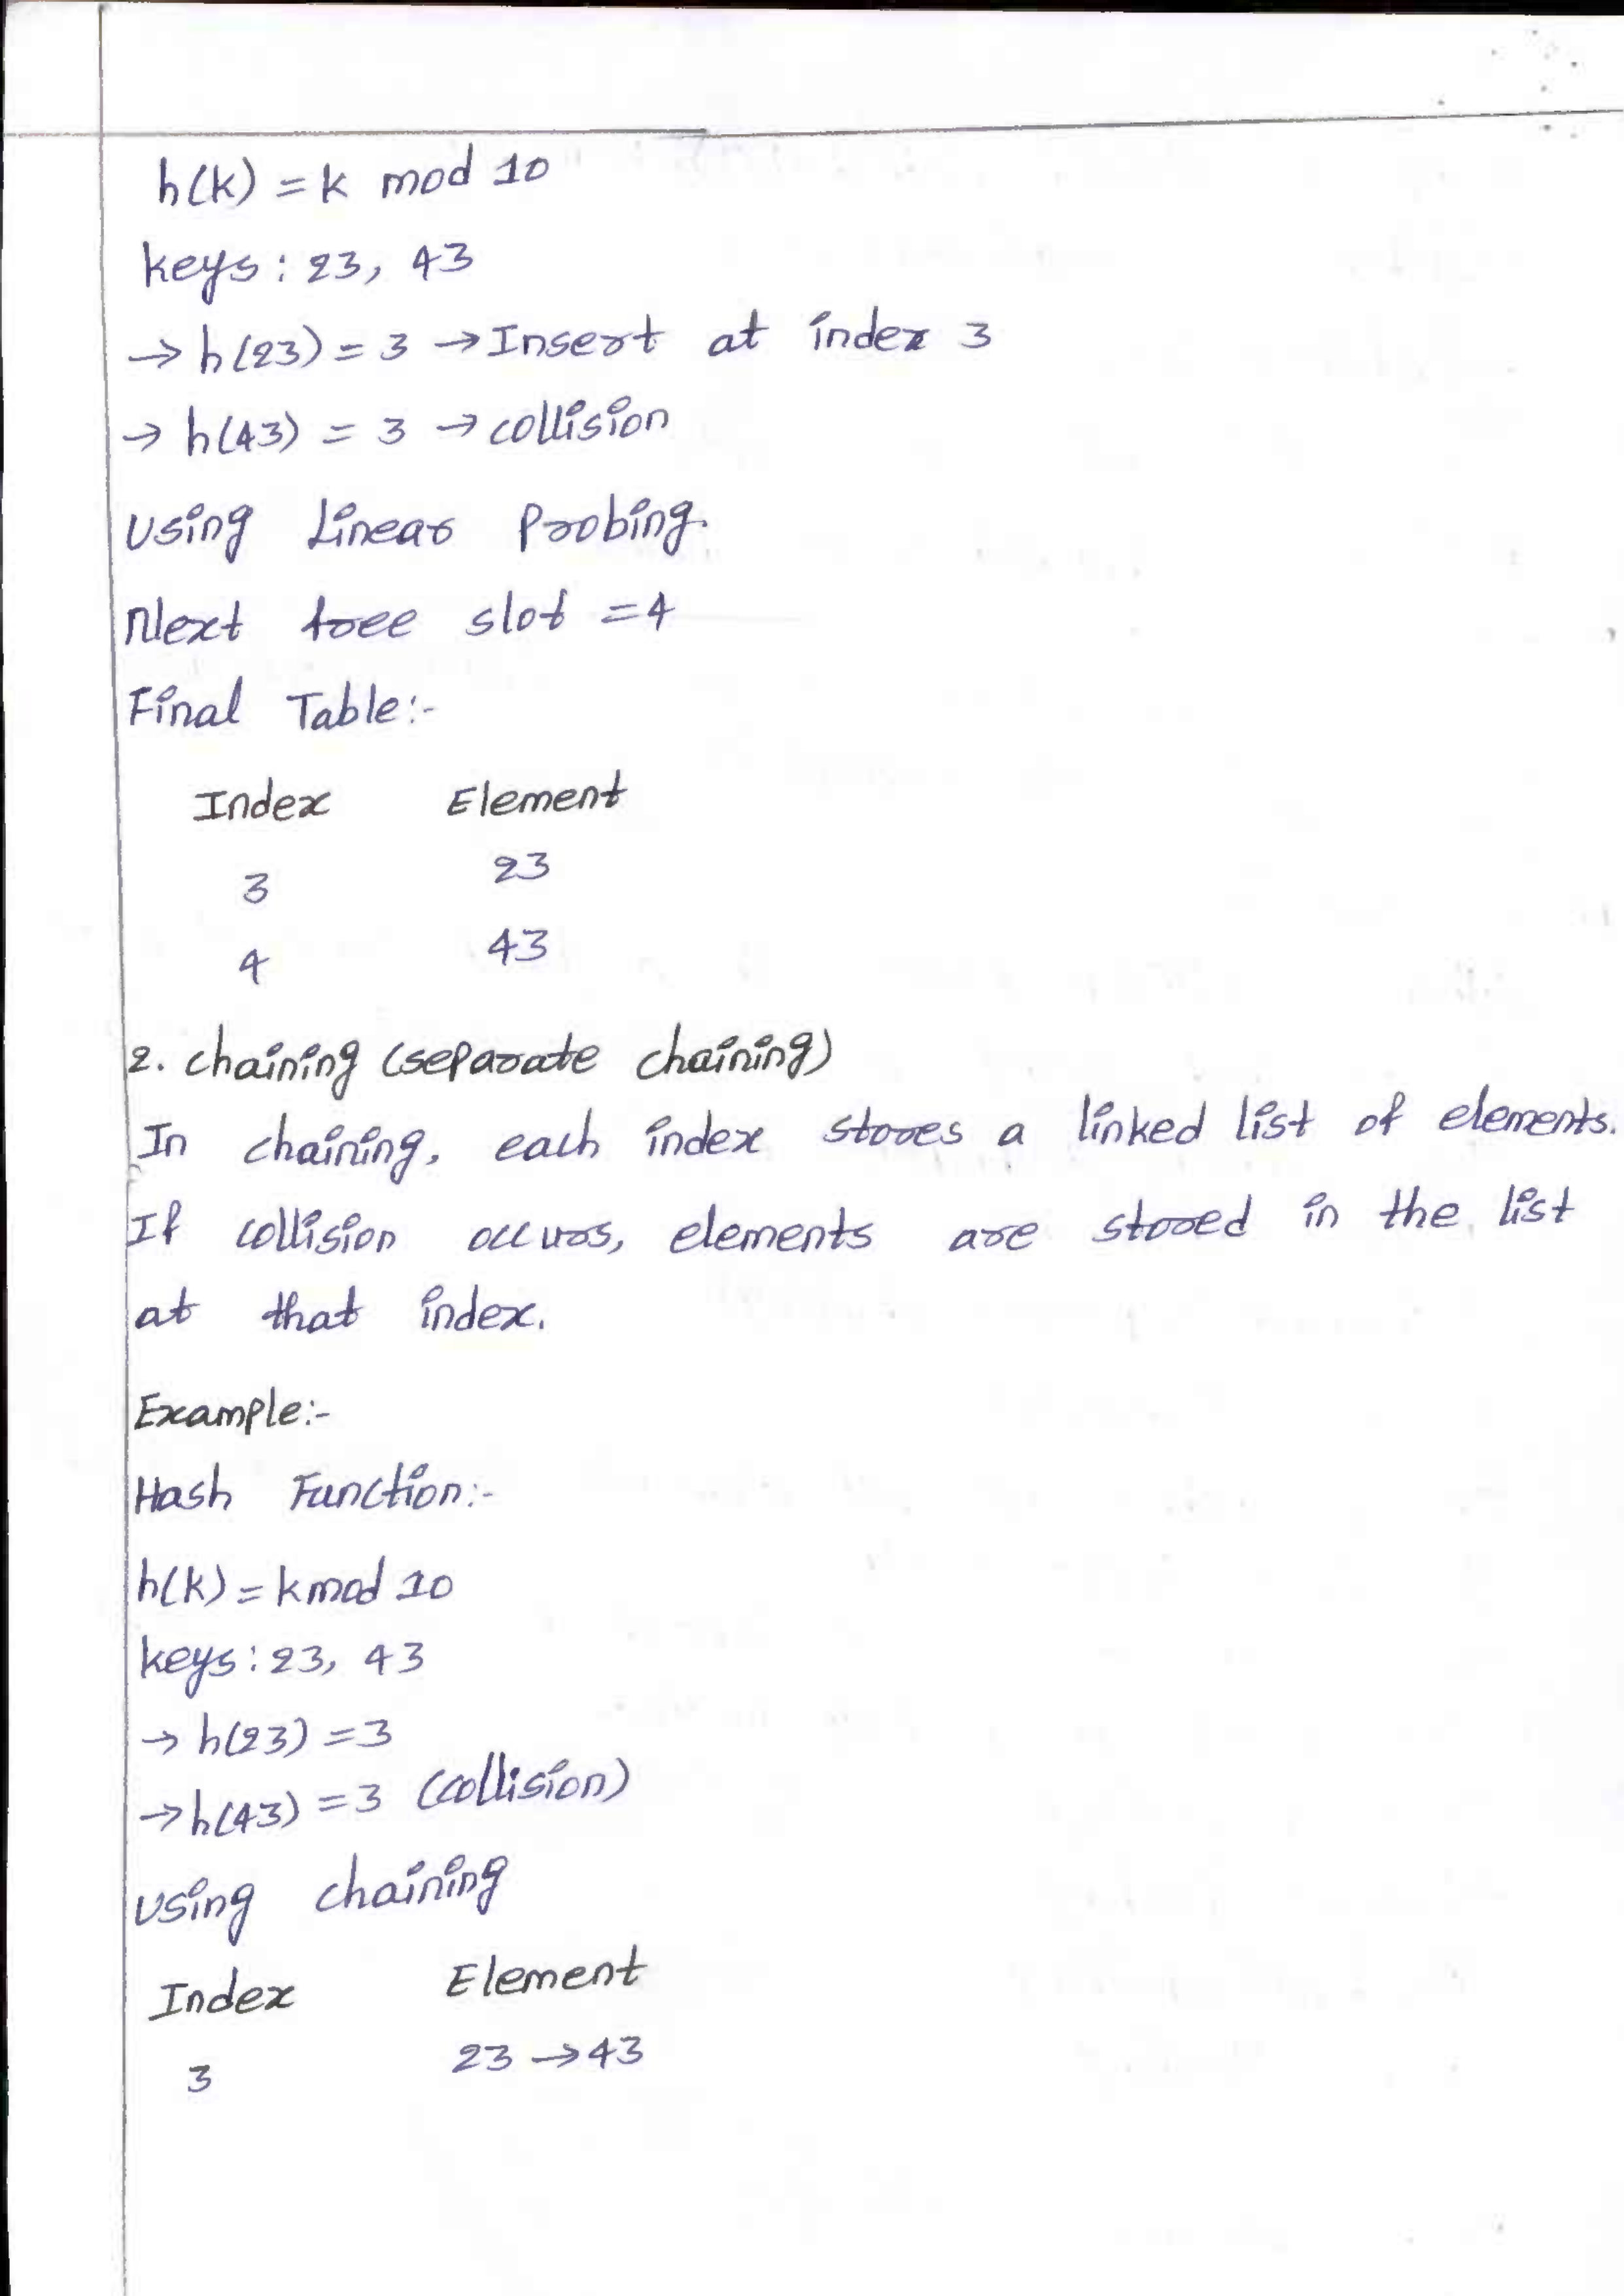 h(k) = k mod 10
keys: 23, 43
→ h(23) = 3 → Insert at index 3
→ h(43) = 3 → collision
Using Linear Probing.
Next free slot = 4
Final Table:-
Index Element
3 23
4 43
2. chaining (separate chaining)
In chaining, each index stores a linked list of elements.
If collision occurs, elements are stored in the list
at that index.
Example:-
Hash Function:-
h(k) = k mod 10
keys: 23, 43
→ h(23) = 3
→ h(43) = 3 (collision)
Using chaining
Index Element
3 23 → 43